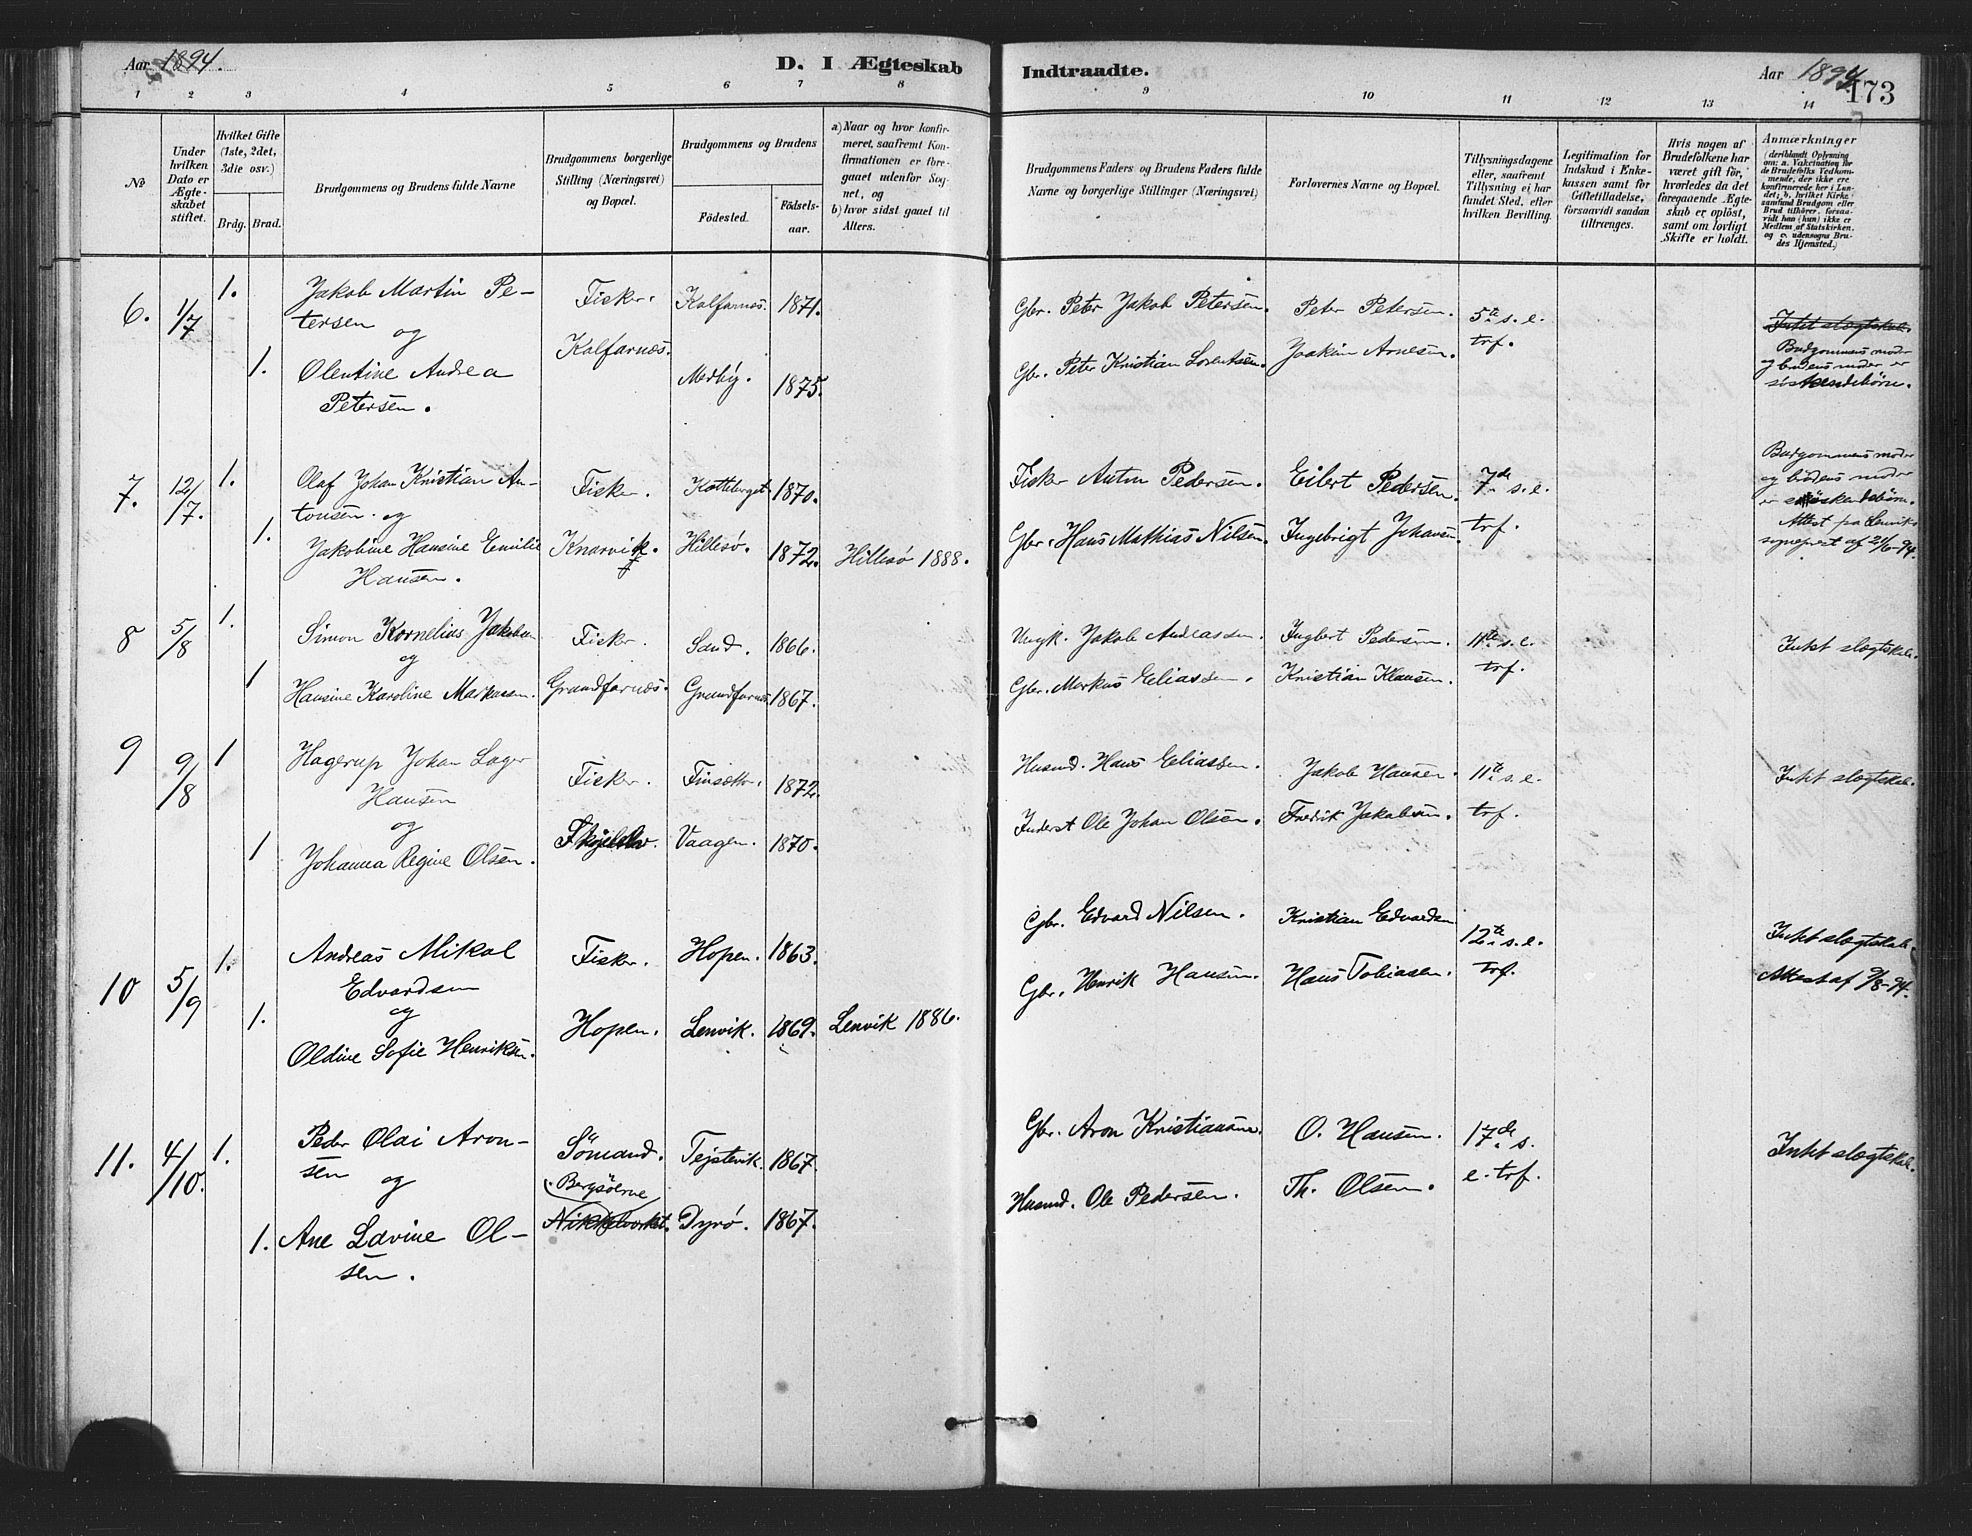 Aar 1894.
D. I Ægteskab
Indtraadte.
Aar 1894
173
1 2 3 4 5 6 7 8 9 10 11 12 13 14
No
Under hvilken Dato er Ægteskabet stiftet.
Hvilket Gifte (1ste, 2det, 3die osv.)
Brdg. Brud.
Brudgommens og Brudens fulde Navne
Brudgommens borgerlige Stilling (Næringsvei) og Bopæl.
Brudgommens og Brudens
Fødested.
Fødselsaar.
a) Naar og hvor konfirmeret, saafremt Konfirmationen er foregaaet udenfor Sognet, og
b) hvor sidst gaaet til Alters.
Brudgommens Faders og Brudens Faders fulde Navne og borgerlige Stillinger (Næringsvei)
Forlovernes Navne og Bopæl.
Tillysningsdagene eller, saafremt Tillysning ei har fundet Sted, efter hvilken Bevilling.
Legitimation for Indskud i Enkekassen samt for Giftetilladelse, forsaavidt saadan tiltrænges.
Hvis nogen af Brudefolkene har været gift før, hvorledes da det foregaaende Ægteskab er opløst, samt om lovligt Skifte er holdt.
Anmærkninger
(deriblandt Oplysning om: a. Vakcination for de Brudefolks Vedkommende, der ikke ere konfirmerede her i Landet; b. hvilket Kirkesamfund Brudgom eller Brud tilhører, forsaavidt han (hun) ikke er Medlem af Statskirken, og c. udensogns Brudes Hjemsted.)
6. 1/7 1. Jakob Martin Pe-
tersen
og
1. Olentine Andrea
Petersen.
Fisker.
Kalfarnes.
Kalfarnes. 1871.
Medby. 1875.
Gbr. Peter Jakob Petersen.
Gbr. Peter Kristian Lorentsen.
Peter Petersen.
Joakim Arnesen.
5te s. e.
trf.
Intet slægtskab.
Brudgommens moder
og brudens moder er
søskendebørn.
7. 12/7. 1. Olaf Johan Kristian An-
tonsen. og
1. Jakobine Hansine Emilie
Hansen.
Fisker.
Knarvik.
Hillesø.
1870.
1872.
Hillesø 1888.
Fisker Anton Pedersen.
Gbr. Hans Mathias Nilsen.
Eilert Pedersen.
Ingebrigt Johansen.
7de s. e.
trf.
Brudgommens moder
og brudens moder
er søskendebørn.
Attest fra Lenviks
sogneprest af 21/6-94.
8 5/8 1. Simon Kornelius Jakobsen
og
1 Hansine Karoline Markussen.
Fisker.
Grundfarnes.
Sand. 1866.
Grundfarnes. 1867.
Ungk. Jakob Andreassen.
Gbr. Markus Eliassen.
Ingbert Pedersen.
Kristian Klausen.
11te s. e.
trf.
Intet slægtskab.
9 9/8 1 Hagerup Johan Lager
Hansen
og
1 Johanna Regine Olsen.
Fisker.
Finsæter. 1872.
Vaagen. 1870.
Husmd. Hans Eliassen.
Inderst Ole Johan Olsen.
Jakob Hansen.
Fredrik Jakobsen.
11te s. e.
trf.
Intet slægtskab.
10 5/9 1. Andreas Mikal
Edvardsen
og
1. Oldine Sofie Henriksen.
Fisker.
Hopen.
Hopen. 1863.
Lenvik. 1869.
Lenvik 1886.
Gbr. Edvard Nilsen.
Gbr. Henrik Hansen.
Kristian Edvardsen
Hans Tobiasen.
12te s. e.
trf.
Intet slægtskab.
Attest af 9/8-94.
11. 4/10. 1. Peder Olai Aron-
sen
og
1. Ane Lovine Ol-
sen.
Sömand.
Bergsöerne
Nikkelverket.
Tejstevik. 1867.
Dyrö. 1867.
Gbr. Aron Kristiansen.
Husmd. Ole Pedersen.
O. Hansen.
Th. Olsen.
17de s.
e. trf.
Intet slægtskab.